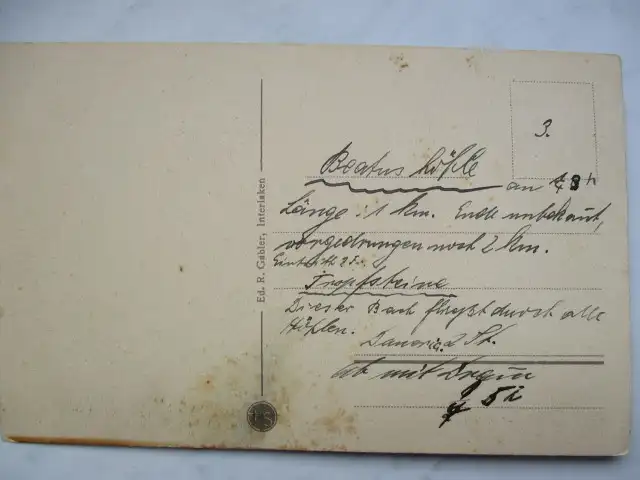 3.
Beatus Höhle
an 8 h
Länge : 1 km. Ende unbekannt,
vorgedrungen noch 2 km.
Eintritt 2 Fr.
Tropfsteine
Dieser Bach fließt durch alle
Höhlen.
Dauer 2 St.
ab mit
5
Ed. R. Gabler, Interlaken